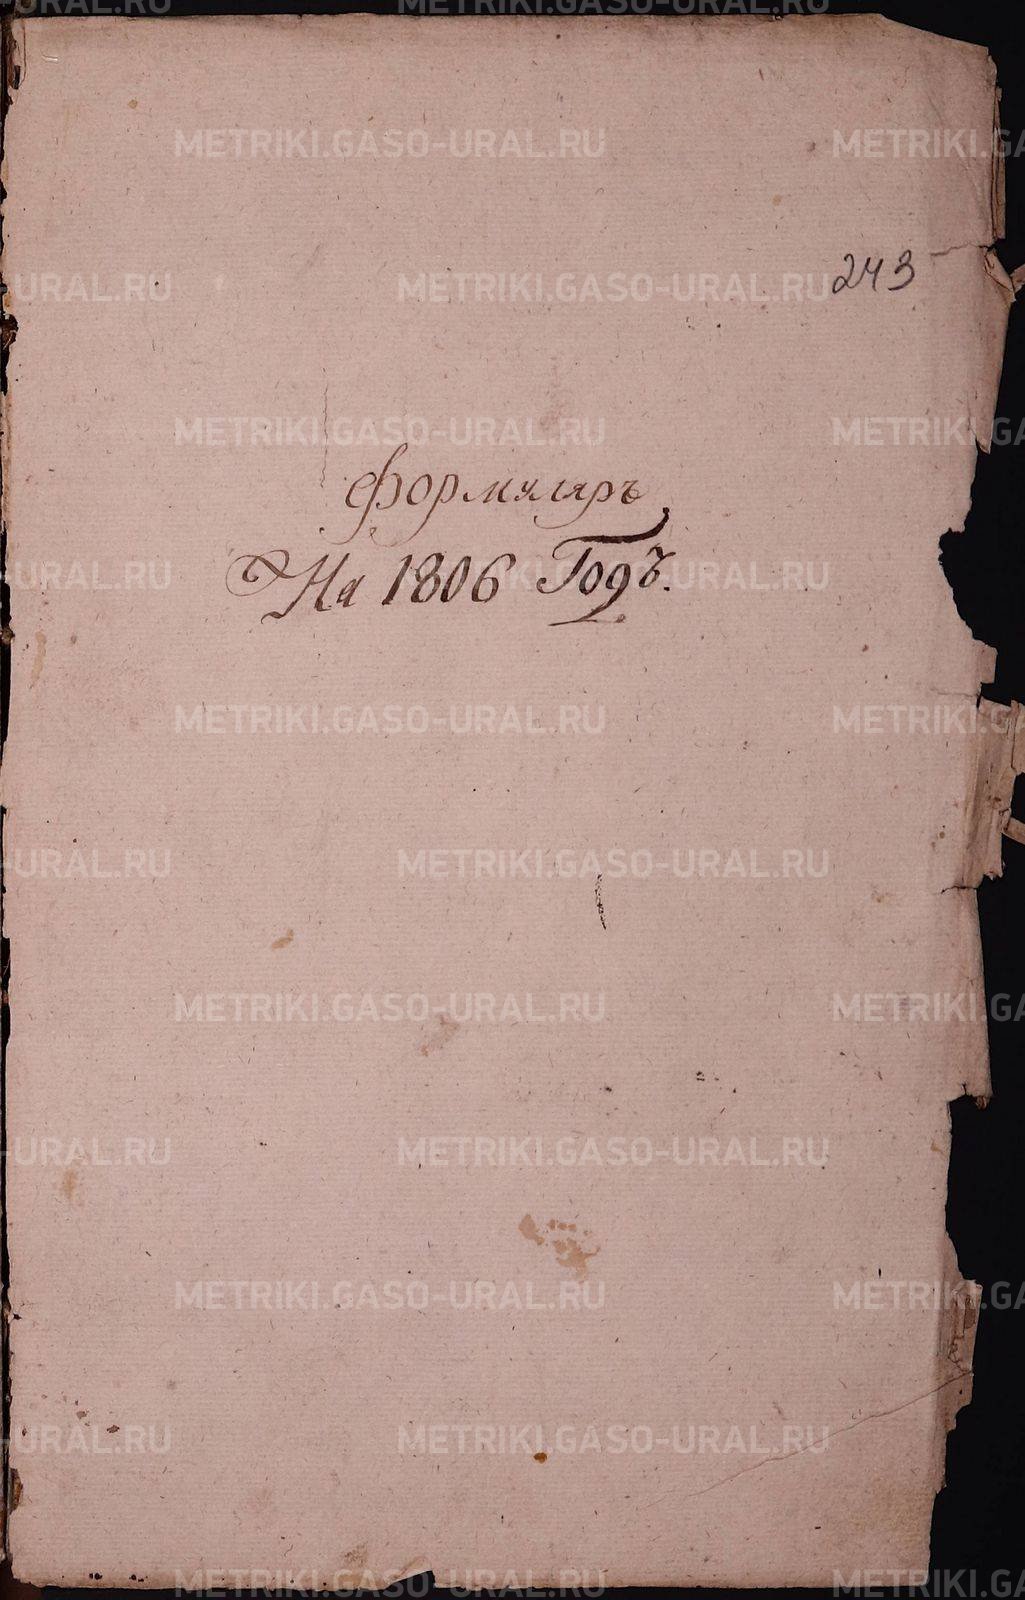 243
Формуляръ
На 1806 Годъ.
METRIKI.GASO-URAL.RU